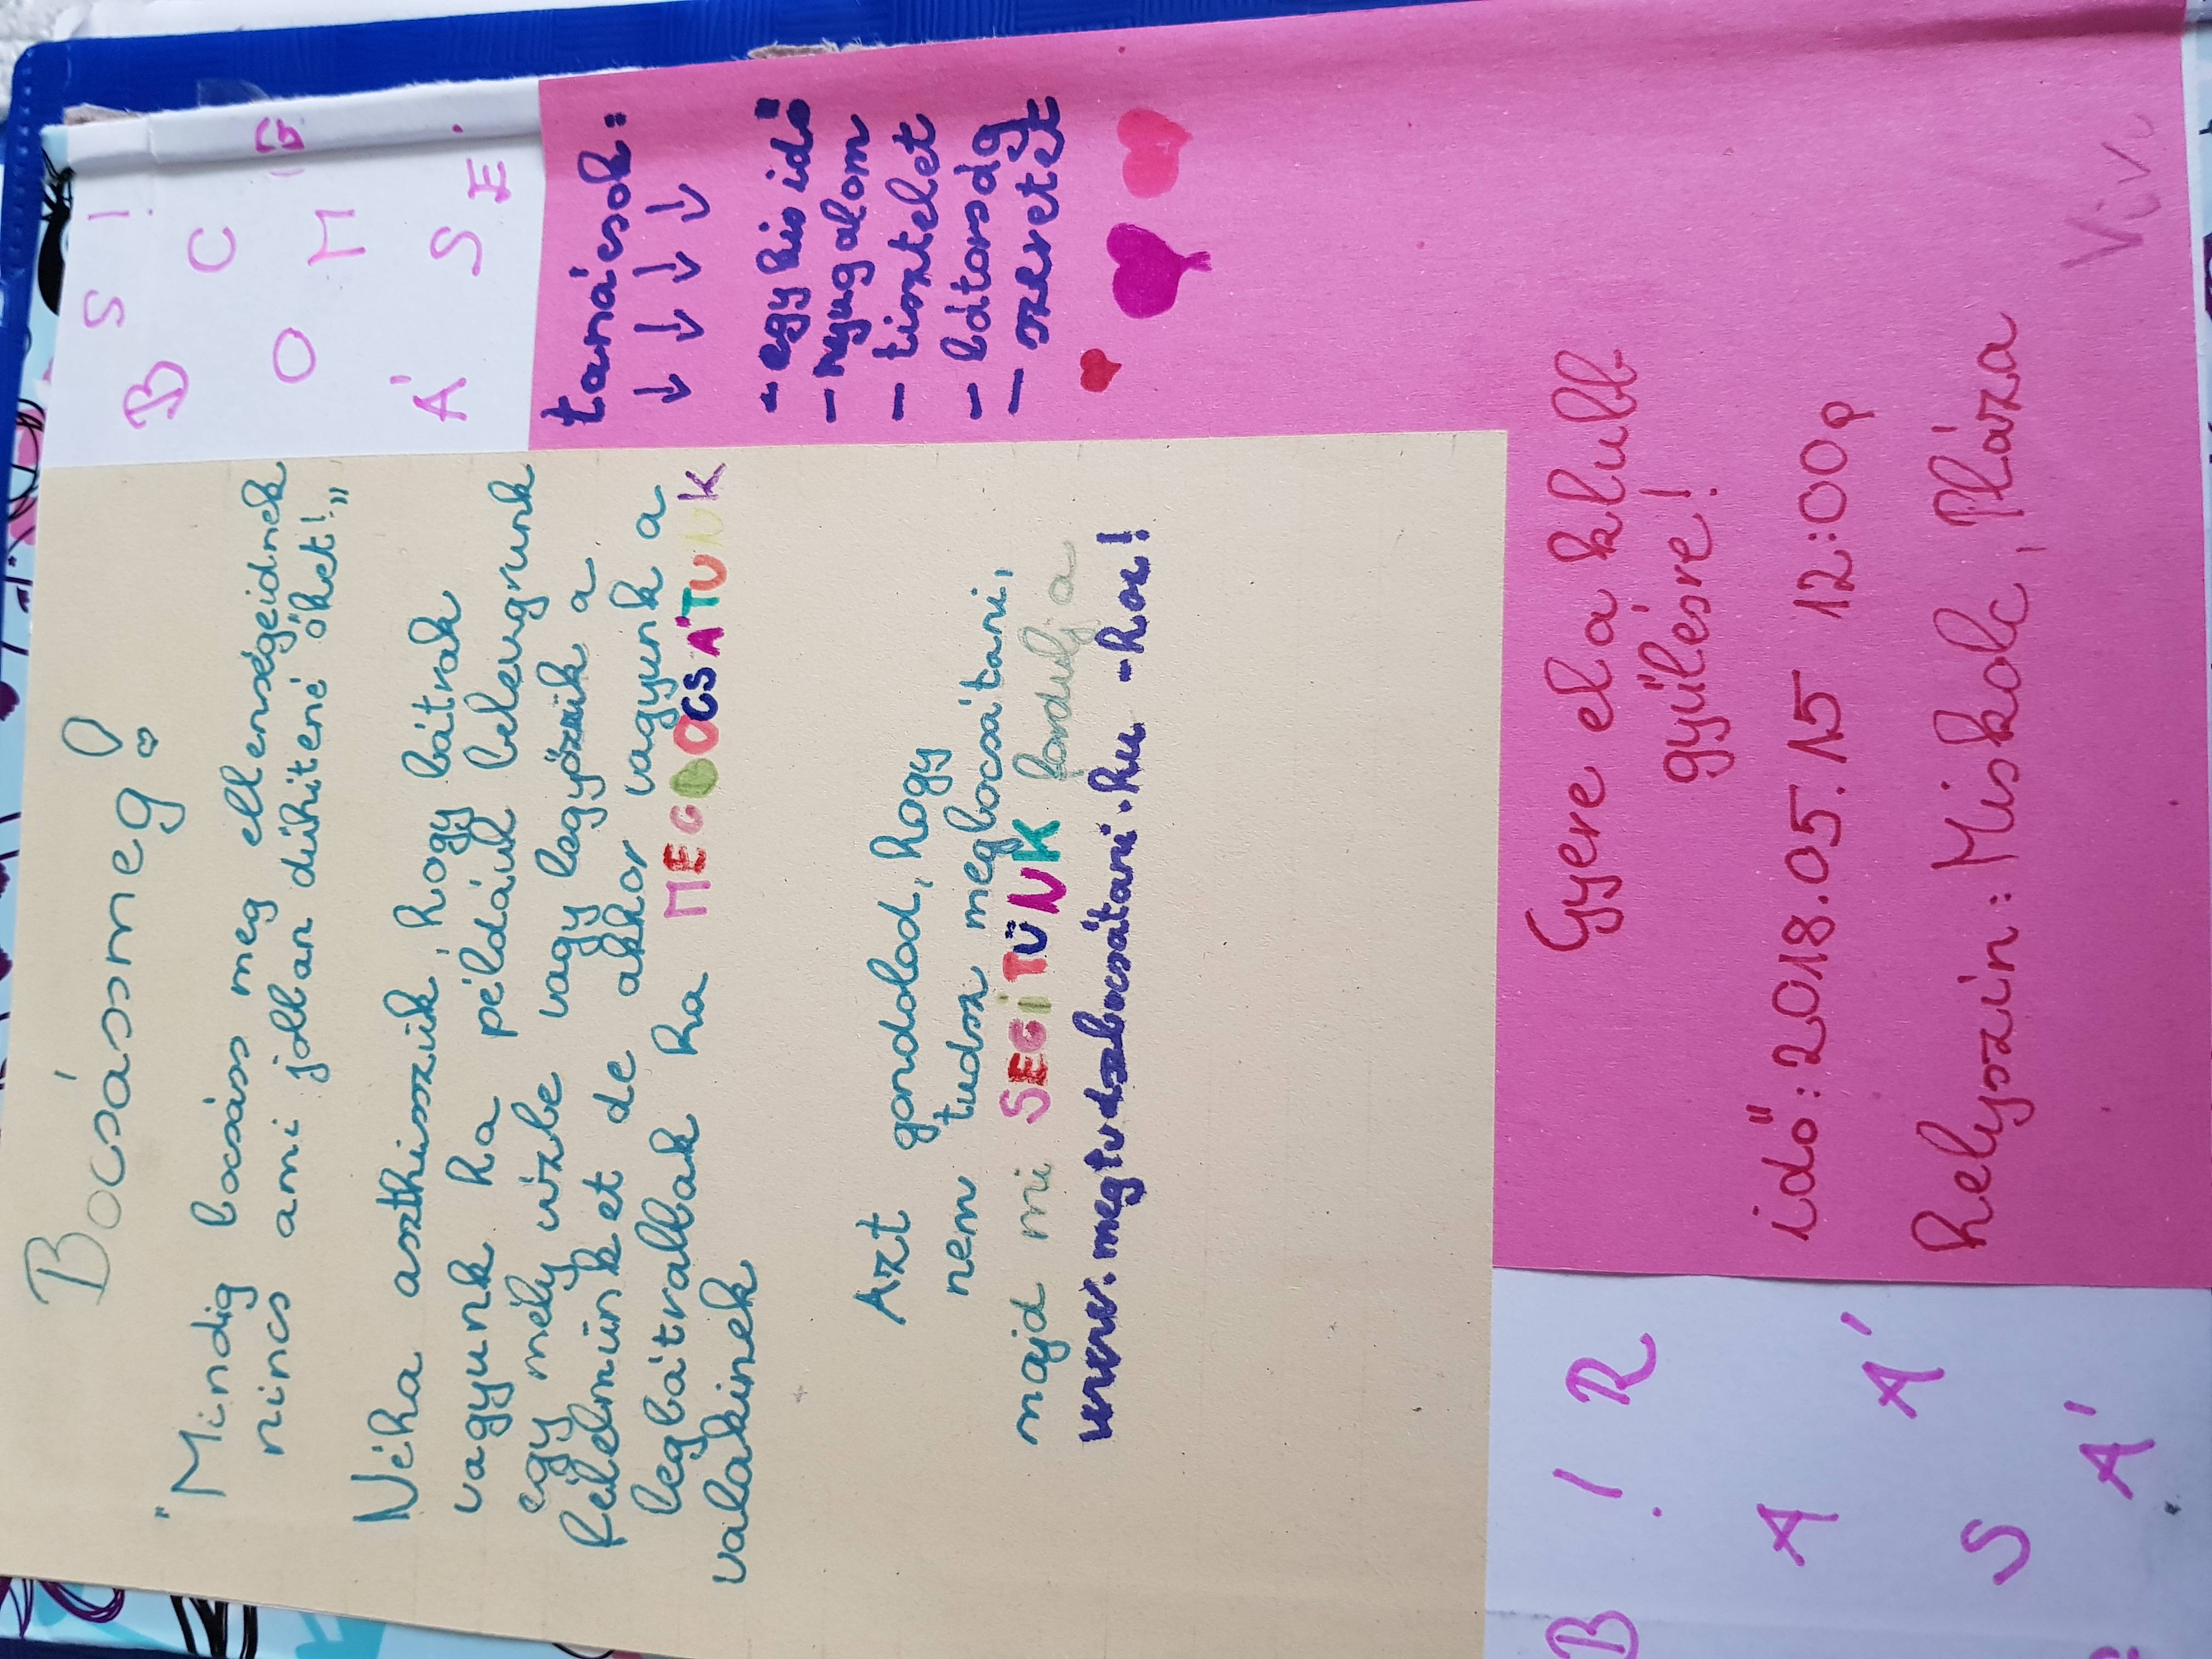 Bocásmeg!
"Mindig bocsáss meg ellenségeidnek
nincs ami jobban dühitené őket!"
Néha aszthisszük, hogy bátrak
vagyunk ha példáúl beleugrunk
egy mély vízbe vagy legyőzzük a
félelmünket de akkor vagyunk a
legbátrabbak ha MEGBOCSÁTUNK
valakinek
Azt gondolod, hogy
nem tudsz megbocsátani,
majd mi SEGITÜNK fordulj a
www.megtudszbocsátani.hu -hoz!
B S !
O C
M G
Á S E .
tanácsok:
↓ ↓ ↓ ↓
- egy kis idő
- nyugalom
- tisztelet
- bátorság
- szeretet
Gyere el a klubb
gyülésre!
idő: 2018.05.15 12:00
helyszín: Miskolc, Pláza
Vivi
B ! R
A Á
S Á